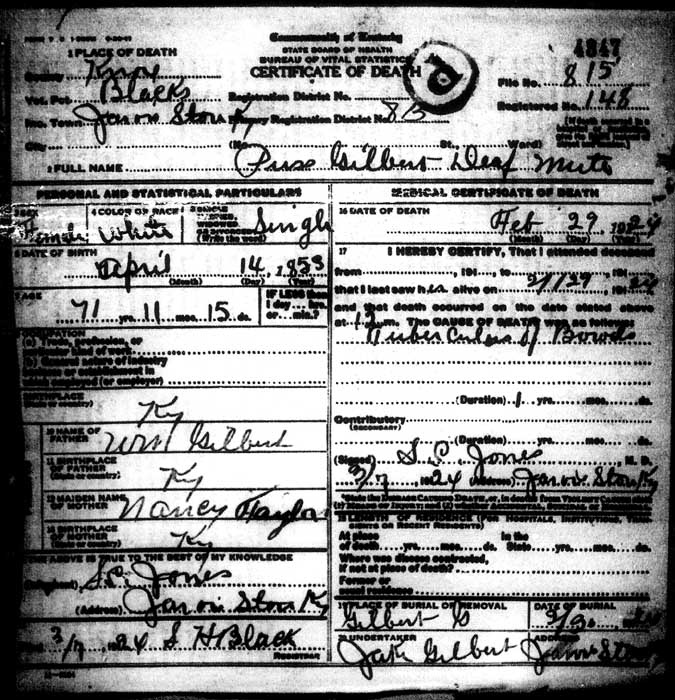 Commonwealth of Kentucky
STATE BOARD OF HEALTH
BUREAU OF VITAL STATISTICS
CERTIFICATE OF DEATH
4347
1 PLACE OF DEATH
County Knox
Vot. Pct. Blacks
Inc. Town Jarvis Store Ky
City
Registration District No.
Primary Registration District No. 815
File No. 815
Registered No. 148
(No. St., Ward)
2 FULL NAME Gilbert Deaf Mute
PERSONAL AND STATISTICAL PARTICULARS
3 SEX Female
4 COLOR OR RACE White
5 SINGLE
WIDOWED
(Write the word)
Single
6 DATE OF BIRTH
April 14, 1853
(Month) (Day) (Year)
7 AGE
71 yrs. 11 mos. 15 ds.
IF LESS than
1 day... hrs.
or... min.?
OCCUPATION
(a) Trade, profession, or
(or employer)
(State or country)
Ky
10 NAME OF
FATHER
Wm Gilbert
11 BIRTHPLACE
OF FATHER
(State or country)
Ky
12 MAIDEN NAME
OF MOTHER
Nancy Taylor
13 BIRTHPLACE
OF MOTHER
(State or country)
Ky
ABOVE IS TRUE TO THE BEST OF MY KNOWLEDGE
(Informant) S.C. Jones
(Address) Jarvis Store Ky
3/7 1924 S H Black
REGISTRAR
MEDICAL CERTIFICATE OF DEATH
16 DATE OF DEATH
Feb 29, 1924
(Month) (Day) (Year)
17 I HEREBY CERTIFY, That I attended deceased
from , 191 , to , 191
that I last saw her alive on 2/29, 1924
and that death occurred on the date stated above
at 12 m. The CAUSE OF DEATH was as follows:
Tuberculosis of Bowels
(Duration) 1 yrs. mos. ds.
Contributory
(SECONDARY)
(Duration) yrs. mos. ds.
(Signed) S.C. Jones, M. D.
3/7, 1924 (Address) Jarvis Store Ky
*State the DISEASE CAUSING DEATH, or, in deaths from VIOLENT CAUSES state
(1) MEANS OF INJURY; and (2) whether ACCIDENTAL, SUICIDAL or HOMICIDAL
18 LENGTH OF RESIDENCE (FOR HOSPITALS, INSTITUTIONS, TRANSIENTS OR RECENT RESIDENTS)
At place
of death yrs. mos. ds.
In the
State yrs. mos. ds.
Where was disease contracted,
if not at place of death?
Former or
usual residence
19 PLACE OF BURIAL OR REMOVAL
Gilbert
DATE OF BURIAL
20 UNDERTAKER
Jake Gilbert
ADDRESS
Jarvis Store